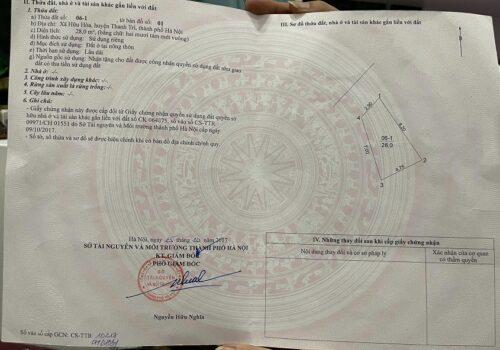 II. Thửa đất, nhà ở và tài sản khác gắn liền với đất
1. Thửa đất:
a) Thửa đất số: 06-1 , tờ bản đồ số: 01
b) Địa chỉ: Xã Hữu Hòa, huyện Thanh Trì, thành phố Hà Nội
c) Diện tích: 28,0 m², (bằng chữ: hai mươi tám mét vuông)
d) Hình thức sử dụng: Sử dụng riêng
đ) Mục đích sử dụng: Đất ở tại nông thôn
e) Thời hạn sử dụng: Lâu dài
g) Nguồn gốc sử dụng: Nhận tặng cho đất được công nhận quyền sử dụng đất như giao
đất có thu tiền sử dụng đất
2. Nhà ở: -/-
3. Công trình xây dựng khác: -/-
4. Rừng sản xuất là rừng trồng: -/-
5. Cây lâu năm: -/-
6. Ghi chú:
- Giấy chứng nhận này được cấp đổi từ Giấy chứng nhận quyền sử dụng đất quyền sở
hữu nhà ở và tài sản khác gắn liền với đất số CK 064175, số vào sổ CS-TTR
09971/CH 01551 do Sở Tài nguyên và Môi trường thành phố Hà Nội cấp ngày
09/10/2017.
- Số tờ, số thửa và sơ đồ sẽ được hiệu chỉnh khi có bản đồ địa chính chính quy.
Hà Nội, ngày tháng năm 2017
SỞ TÀI NGUYÊN VÀ MÔI TRƯỜNG THÀNH PHỐ HÀ NỘI
KT. GIÁM ĐỐC
PHÓ GIÁM ĐỐC
SỞ
TÀI NGUYÊN
Nguyễn Hữu Nghĩa
Số vào sổ cấp GCN: CS-TTR
III. Sơ đồ thửa đất, nhà ở và tài sản khác gắn liền với đất
1
06-1
28,0
2
3
4,75
IV. Những thay đổi sau khi cấp giấy chứng nhận
Nội dung thay đổi và cơ sở pháp lý
Xác nhận của cơ quan
có thẩm quyền